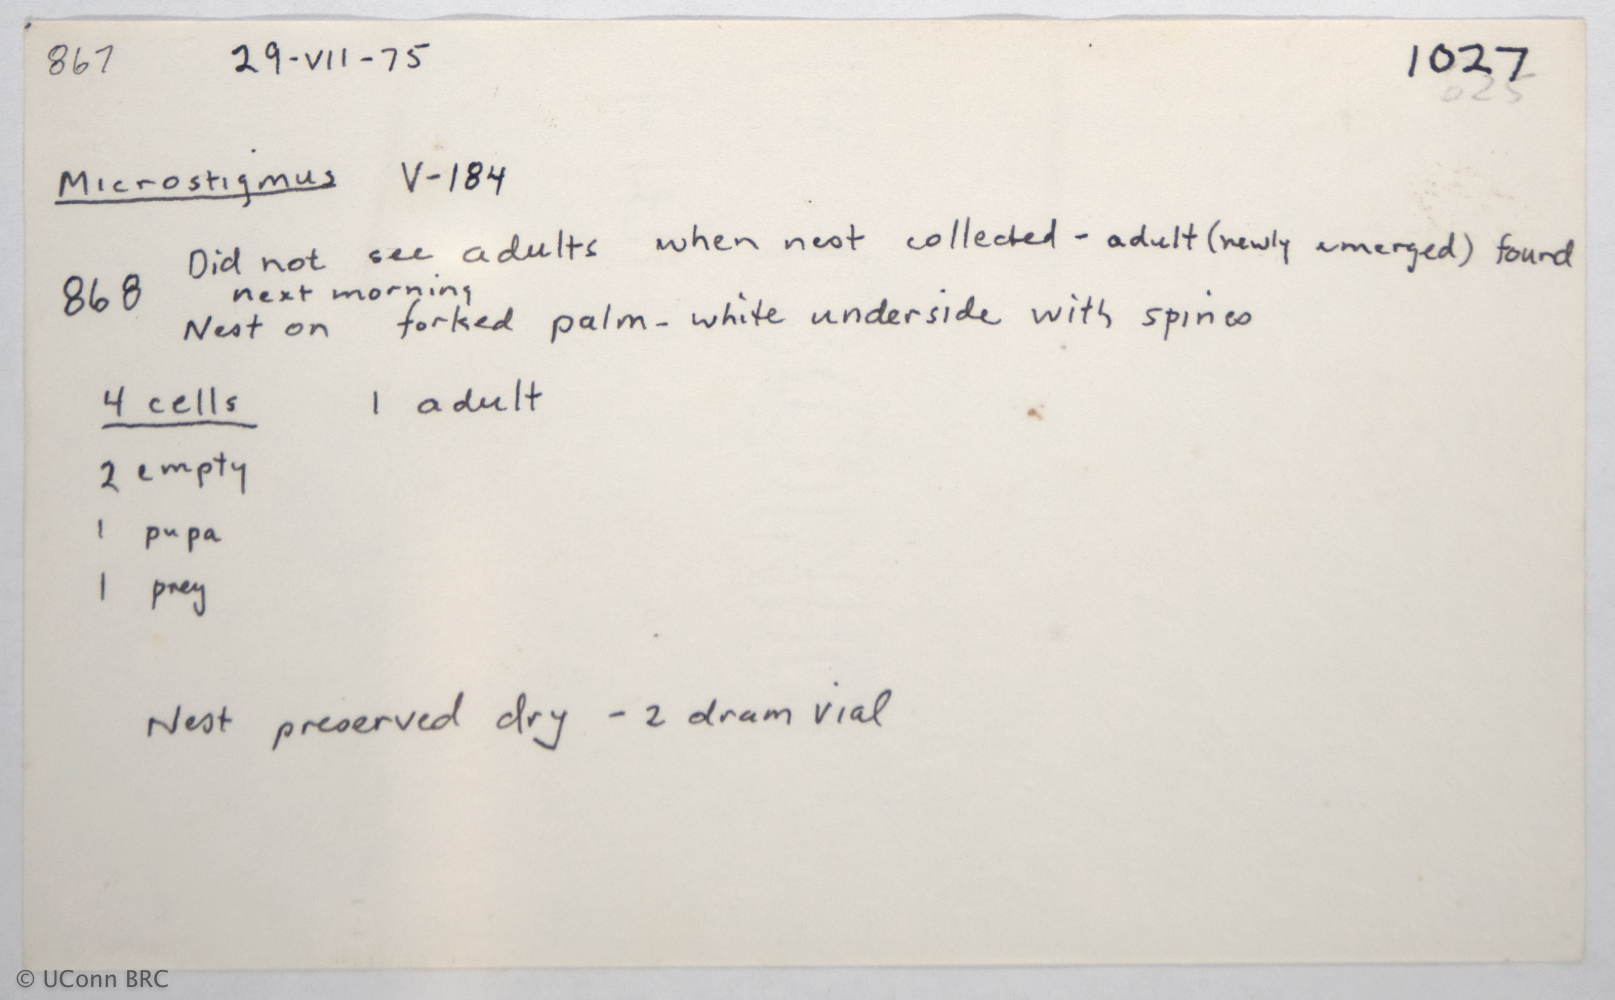 867 29-VII-75 1027
025
Microstigmus V-184
Did not see adults when nest collected - adult (newly emerged) found
868 next morning
Nest on forked palm - white underside with spines
4 cells 1 adult
2 empty
1 pupa
1 prey
Nest preserved dry - 2 dram vial
© UConn BRC